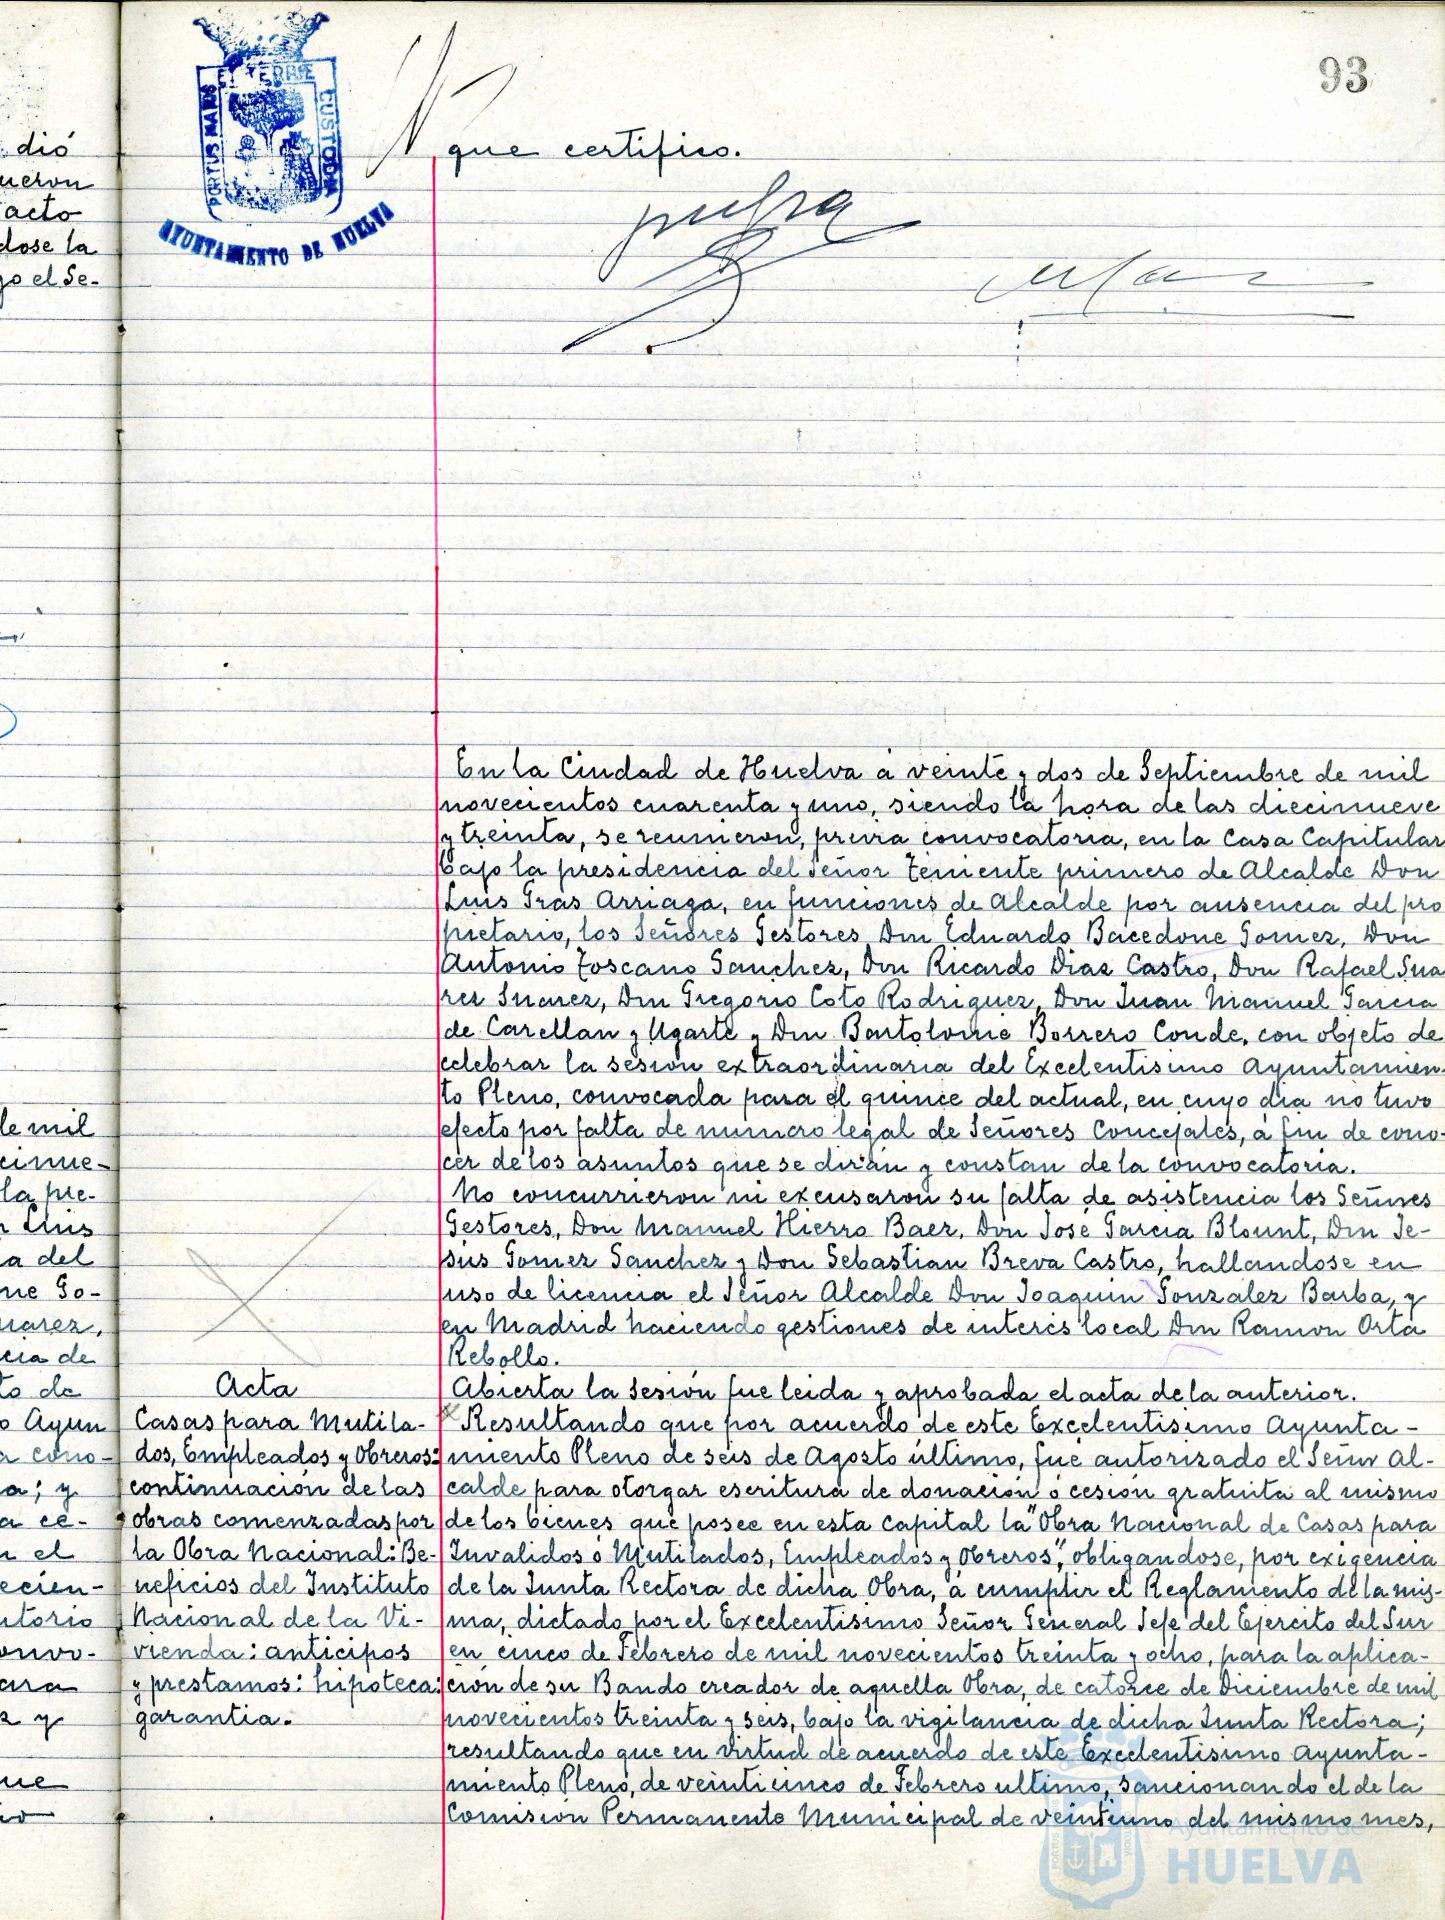 93
ET TERRAE
PORTUS MARIS
CUSTODIA
AYUNTAMIENTO DE HUELVA
que certifico.
dió
ueron
acto
dose la
jo el Se-
le mil
cinue-
la pre-
n Luis
a del
ne Go-
uarez,
cia de
to de
o Ayun
a cono-
a; y
a ce-
n el
ecien-
utorio
onvo-
ara
z y
ue
io
En la Ciudad de Huelva á veinte y dos de Septiembre de mil
novecientos cuarenta y uno, siendo la hora de las diecinueve
y treinta, se reunieron, previa convocatoria, en la Casa Capitular
bajo la presidencia del Señor Teniente primero de Alcalde Don
Luis Gras Arriaga, en funciones de Alcalde por ausencia del pro
pietario, los Señores Gestores Don Eduardo Bacedone Gomez, Don
Antonio Toscano Sanchez, Don Ricardo Dias Castro, Don Rafael Sua
rez Suarez, Don Gregorio Coto Rodriguez, Don Juan Manuel Garcia
de Carellan y Ugarte y Don Bartolomé Borrero Conde, con objeto de
celebrar la sesion extraordinaria del Excelentisimo Ayuntamien-
to Pleno, convocada para el quince del actual, en cuyo dia no tuvo
efecto por falta de numero legal de Señores Concejales, á fin de cono-
cer de los asuntos que se dirán y constan de la convocatoria.
No concurrieron ni excusaron su falta de asistencia los Señores
Gestores, Don Manuel Hierro Baez, Don José Garcia Blount, Don Je-
sús Gomez Sanchez y Don Sebastian Breva Castro, hallandose en
uso de licencia el Señor Alcalde Don Joaquin Gonzalez Barba, y
en Madrid haciendo gestiones de interés local Don Ramon Orta
Rebollo.
Acta
Abierta la sesión fue leida y aprobada el acta de la anterior.
Casas para Mutila-
dos, Empleados y Obreros:
continuación de las
obras comenzadas por
la Obra Nacional: Be-
neficios del Instituto
Nacional de la Vi-
vienda: anticipos
y prestamos: hipoteca:
garantia.
Resultando que por acuerdo de este Excelentisimo Ayunta-
miento Pleno de seis de Agosto último, fué autorizado el Señor Al-
calde para otorgar escritura de donación ó cesión gratuita al mismo
de los bienes que posee en esta capital la "Obra Nacional de Casas para
Invalidos ó Mutilados, Empleados y Obreros", obligandose, por exigencia
de la Junta Rectora de dicha Obra, á cumplir el Reglamento de la mis-
ma, dictado por el Excelentisimo Señor General Jefe del Ejercito del Sur
en cinco de Febrero de mil novecientos treinta y ocho, para la aplica-
ción de su Bando creador de aquella Obra, de catorce de Diciembre de mil
novecientos treinta y seis, bajo la vigilancia de dicha Junta Rectora;
resultando que en virtud de acuerdo de este Excelentisimo Ayunta-
miento Pleno, de veinticinco de Febrero ultimo, sancionando el de la
Comision Permanente Municipal de veintiuno del mismo mes,
Ayuntamiento de
HUELVA